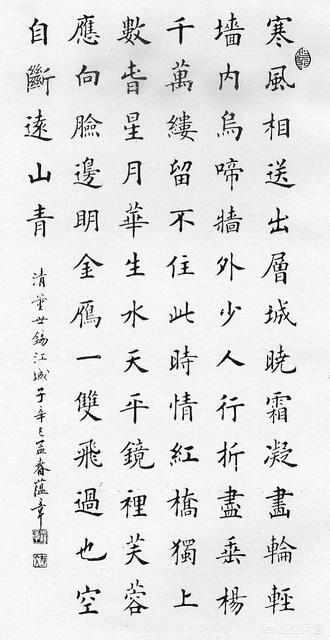 寒風相送出層城暁霜凝畫輪輕
墻内烏啼牆外少人行折盡垂楊
千萬縷留不住此時情紅橋獨上
數旾星月華生水天平鏡裡芙蓉
應向臉邊明金鴈一雙飛過也空
自斷遠山青
清董世錫江城子辛巳孟春蘊章